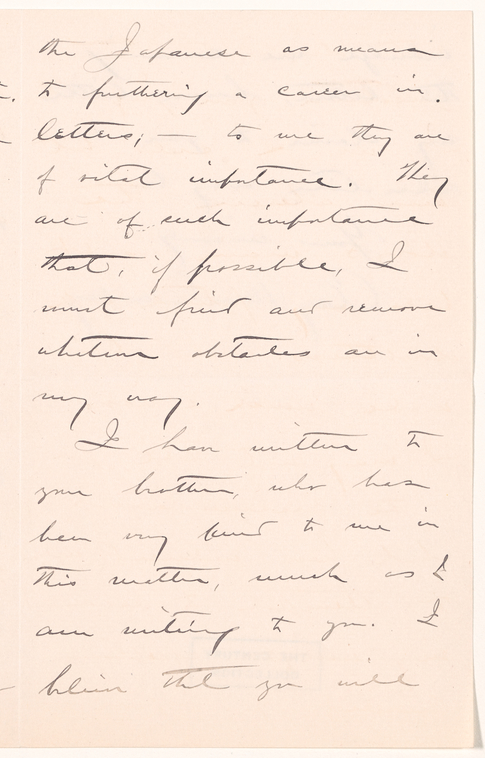 the Japanese as means
to furthering a career in
letters; — to me they are
of vital importance. They
are of such importance
that, if possible, I
must find and remove
whatever obstacles are in
my way.
I have written to
your brother, who has
been very kind to me in
this matter, much as I
am writing to you. I
believe that you will